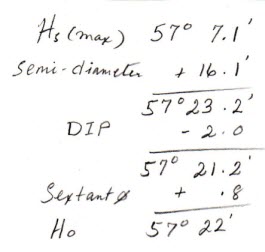 Hs (max) 57° 7.1'
Semi-diameter + 16.1'
57° 23.2'
DIP - 2.0
57° 21.2'
Sextant ø + .8
Ho 57° 22'